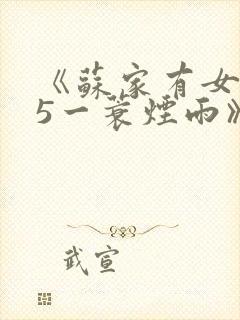 《蘇家有女
5一蓑煙雨》
武宣